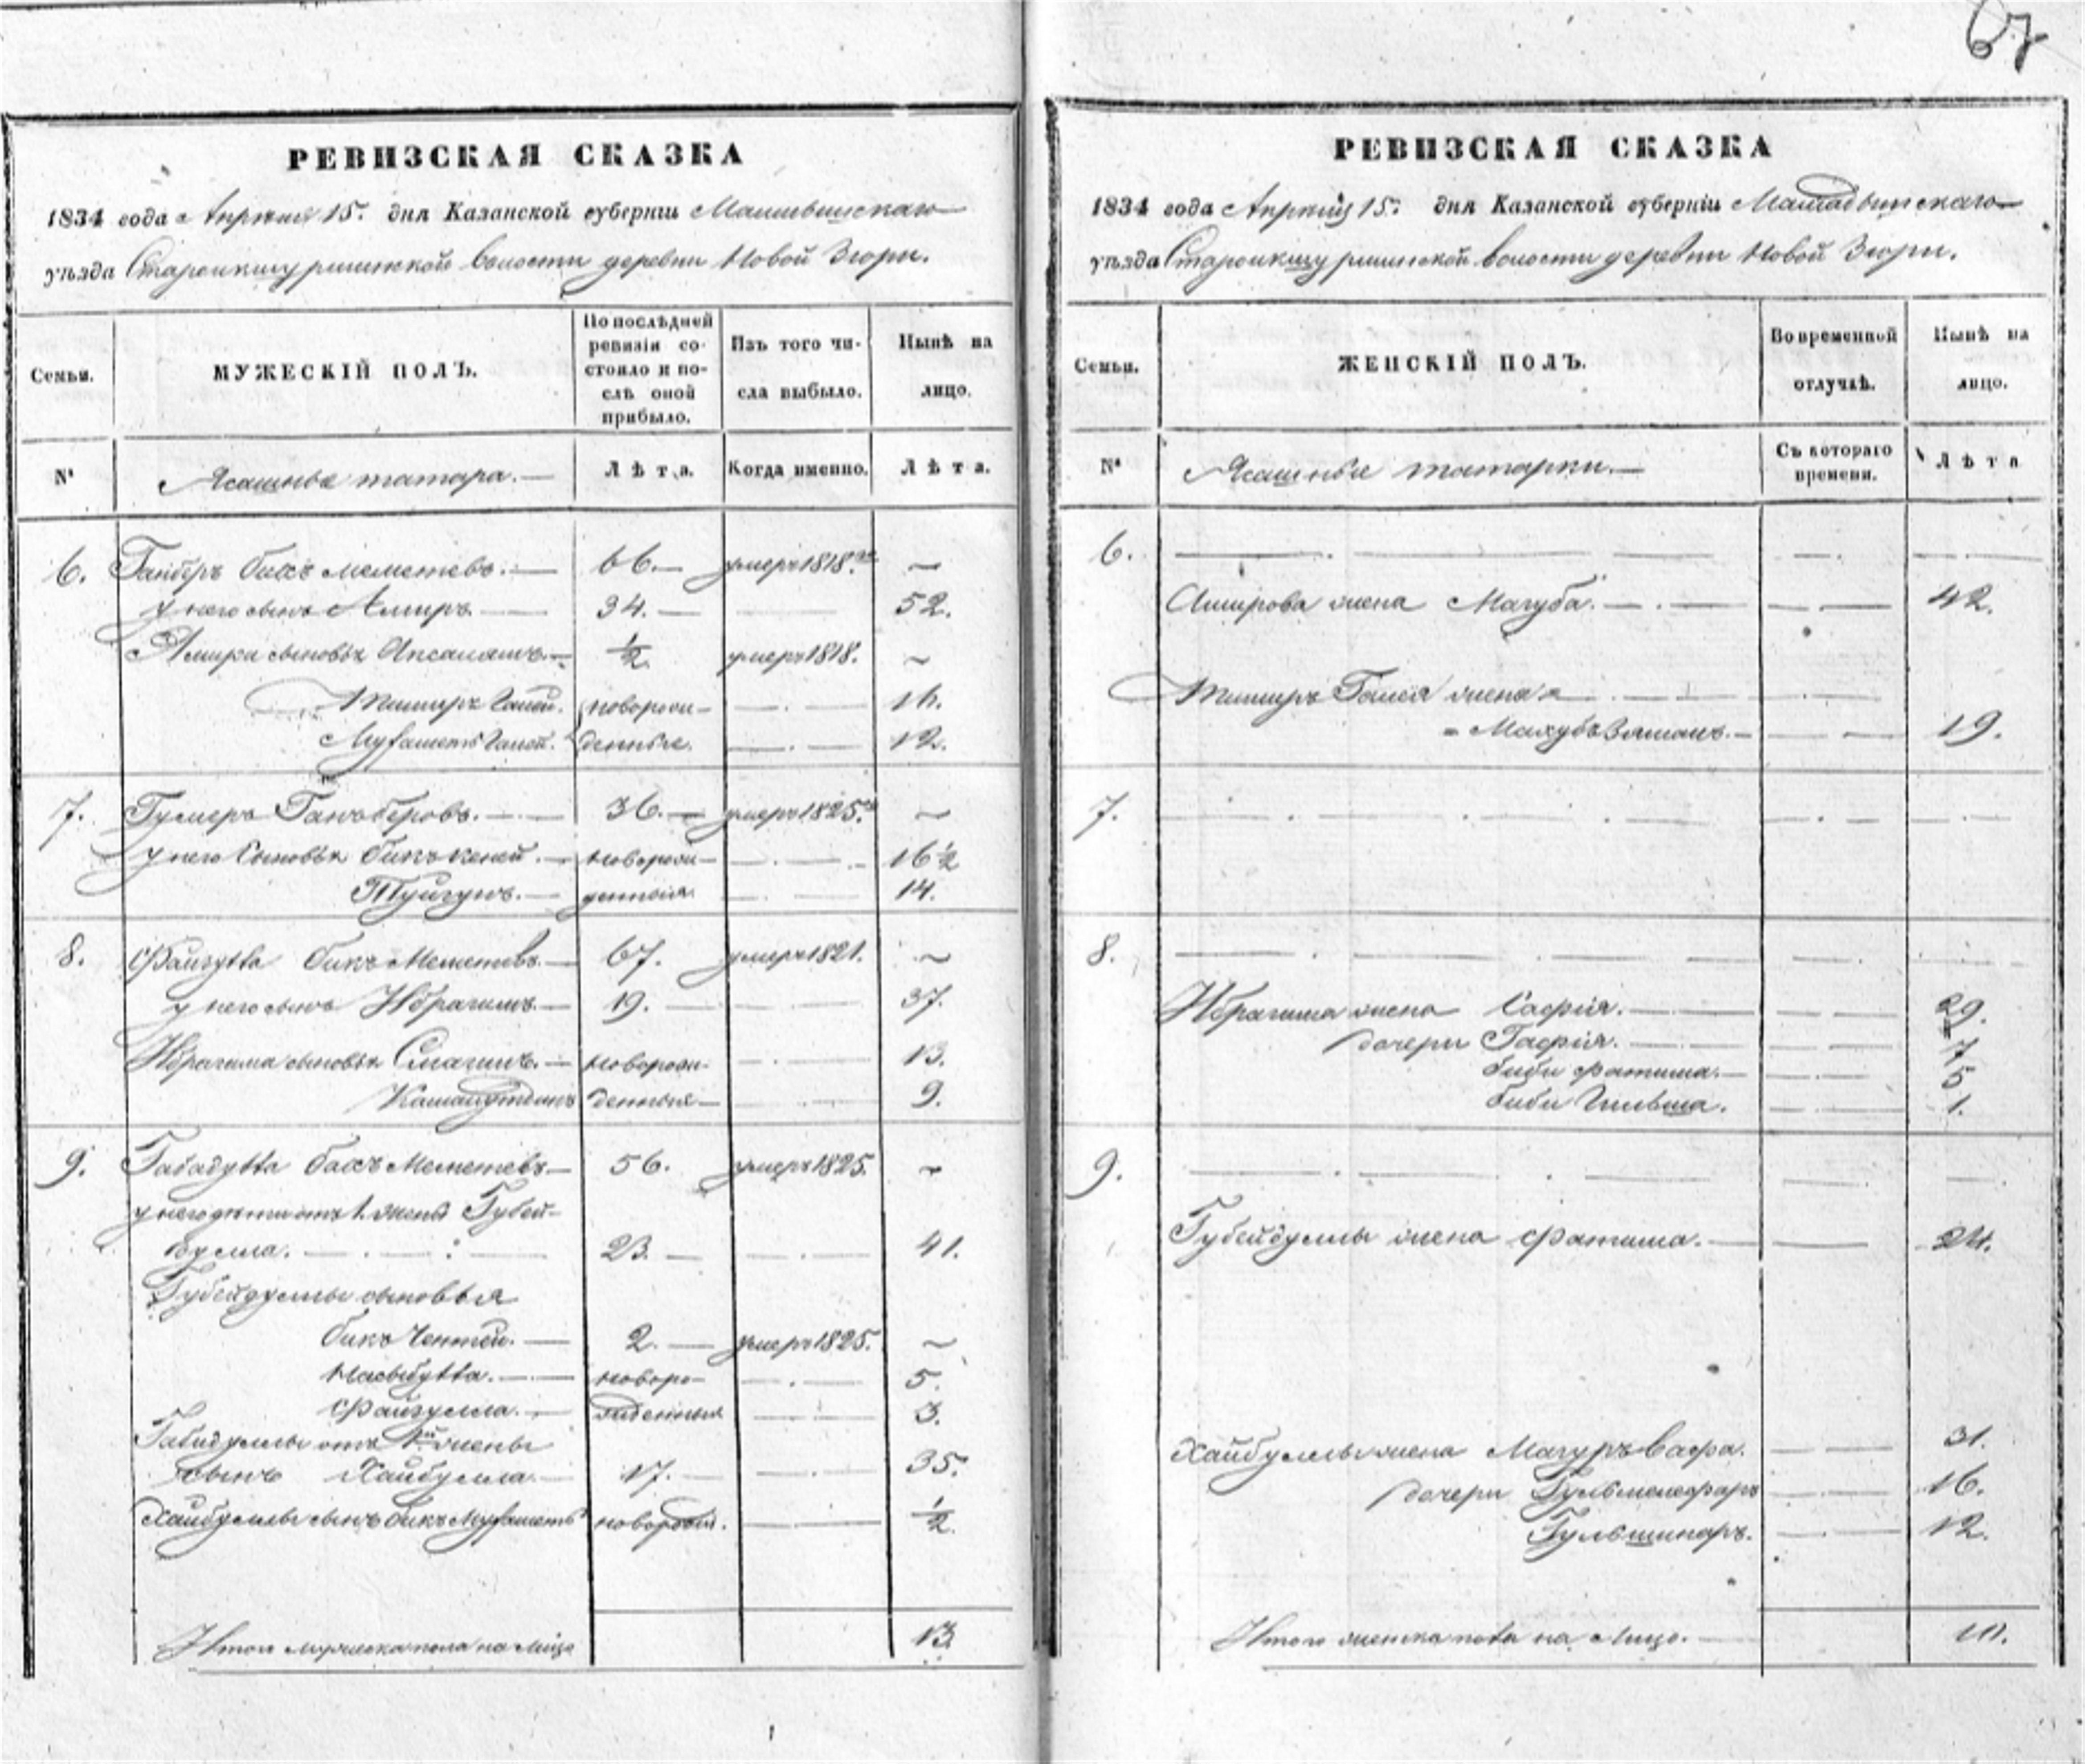 67
РЕВИЗСКАЯ СКАЗКА
1834 года Апреля 15. дня Казанской губерніи
уѣзда волости деревни Новой Зюри.
Семьи.
МУЖЕСКІЙ ПОЛЪ.
По послѣдней
ревизіи со-
стояло и по-
слѣ оной
прибыло.
Изъ того чи-
сла выбыло.
Нынѣ на
лицо.
№
Ясашные татара.
Лѣта.
Когда именно.
Лѣта.
6. бикъ Меметевъ. 66. умеръ 1818.
у него сынъ Амиръ. 34. 52.
Амира сыновья 1/2 умеръ 1818.
Тимиръ Галей. новорож- 16.
Галей. денные. 12.
7. Гумеръ 36. умеръ 1825.
у него сыновья Бикъкеней. новорож- 16 1/2
Туйгунъ. денныя 14.
8. Файзулла бикъ Меметевъ. 67. умеръ 1821.
у него сынъ Ибрагимъ. 19. 37.
Ибрагима сыновья Смагилъ. новорож- 13.
денные 9.
9. Габадулла бикъ Меметевъ 56. умеръ 1825.
у него дѣти отъ 1. жены Губей-
дулла. 23. 41.
Губейдуллы сыновья
бикъ 2. умеръ 1825.
Насыбулла. новоро- 5.
Файзулла. жденныя 3.
Габидуллы отъ жены
сынъ Хайбулла. 17. 35.
Хайбуллы сынъ бикъ новорожд. 1/2
Итого мужеска пола на лицо 13.
РЕВИЗСКАЯ СКАЗКА
1834 года Апреля 15. дня Казанской губерніи Мамадышскаго
уѣзда волости деревни Новой Зюри.
Семьи.
ЖЕНСКІЙ ПОЛЪ.
Во временной
отлучкѣ.
Нынѣ на
лицо.
№
Ясашные татарки.
Съ котораго
времени.
Лѣта
6.
Амирова жена Магуба. 42.
Тимиръ Галея жена
19.
7.
8.
Ибрагима жена Сафія. 29.
дочери Гафія. 7
Биби Фатима. 5
Биби 1.
9.
Губейдуллы жена Фатима. 24.
Хайбуллы жена 31.
дочери 16.
Гульшинаръ. 12.
Итого женска пола на лицо. 10.